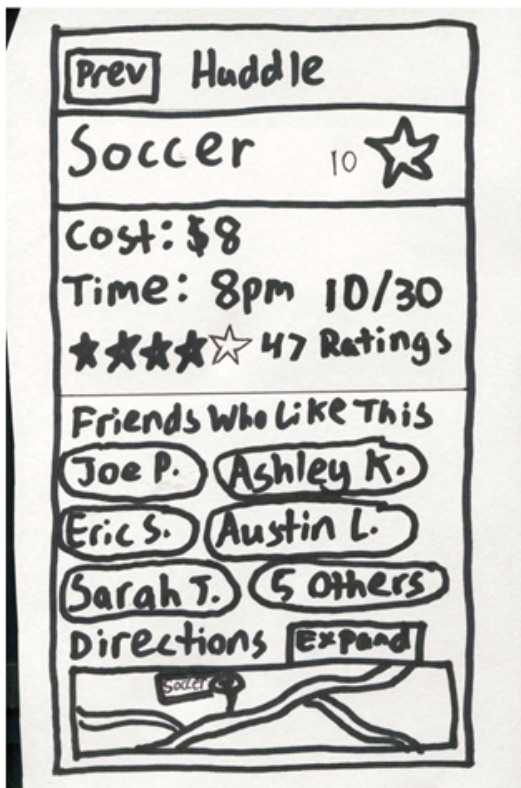 Prev Huddle
Soccer 10
Cost: $8
Time: 8pm 10/30
47 Ratings
Friends Who Like This
Joe P. Ashley K.
Eric S. Austin L.
Sarah T. 5 Others
Directions Expand
Soccer